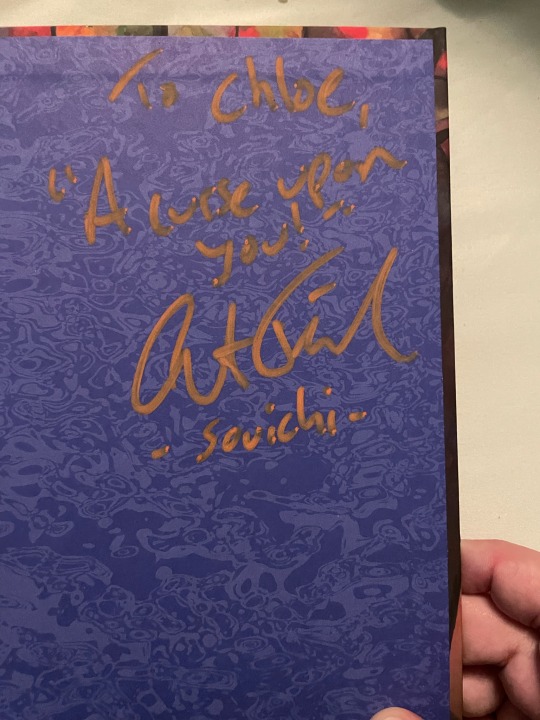 To Chloe,
"A curse upon
you!"
- Souichi -